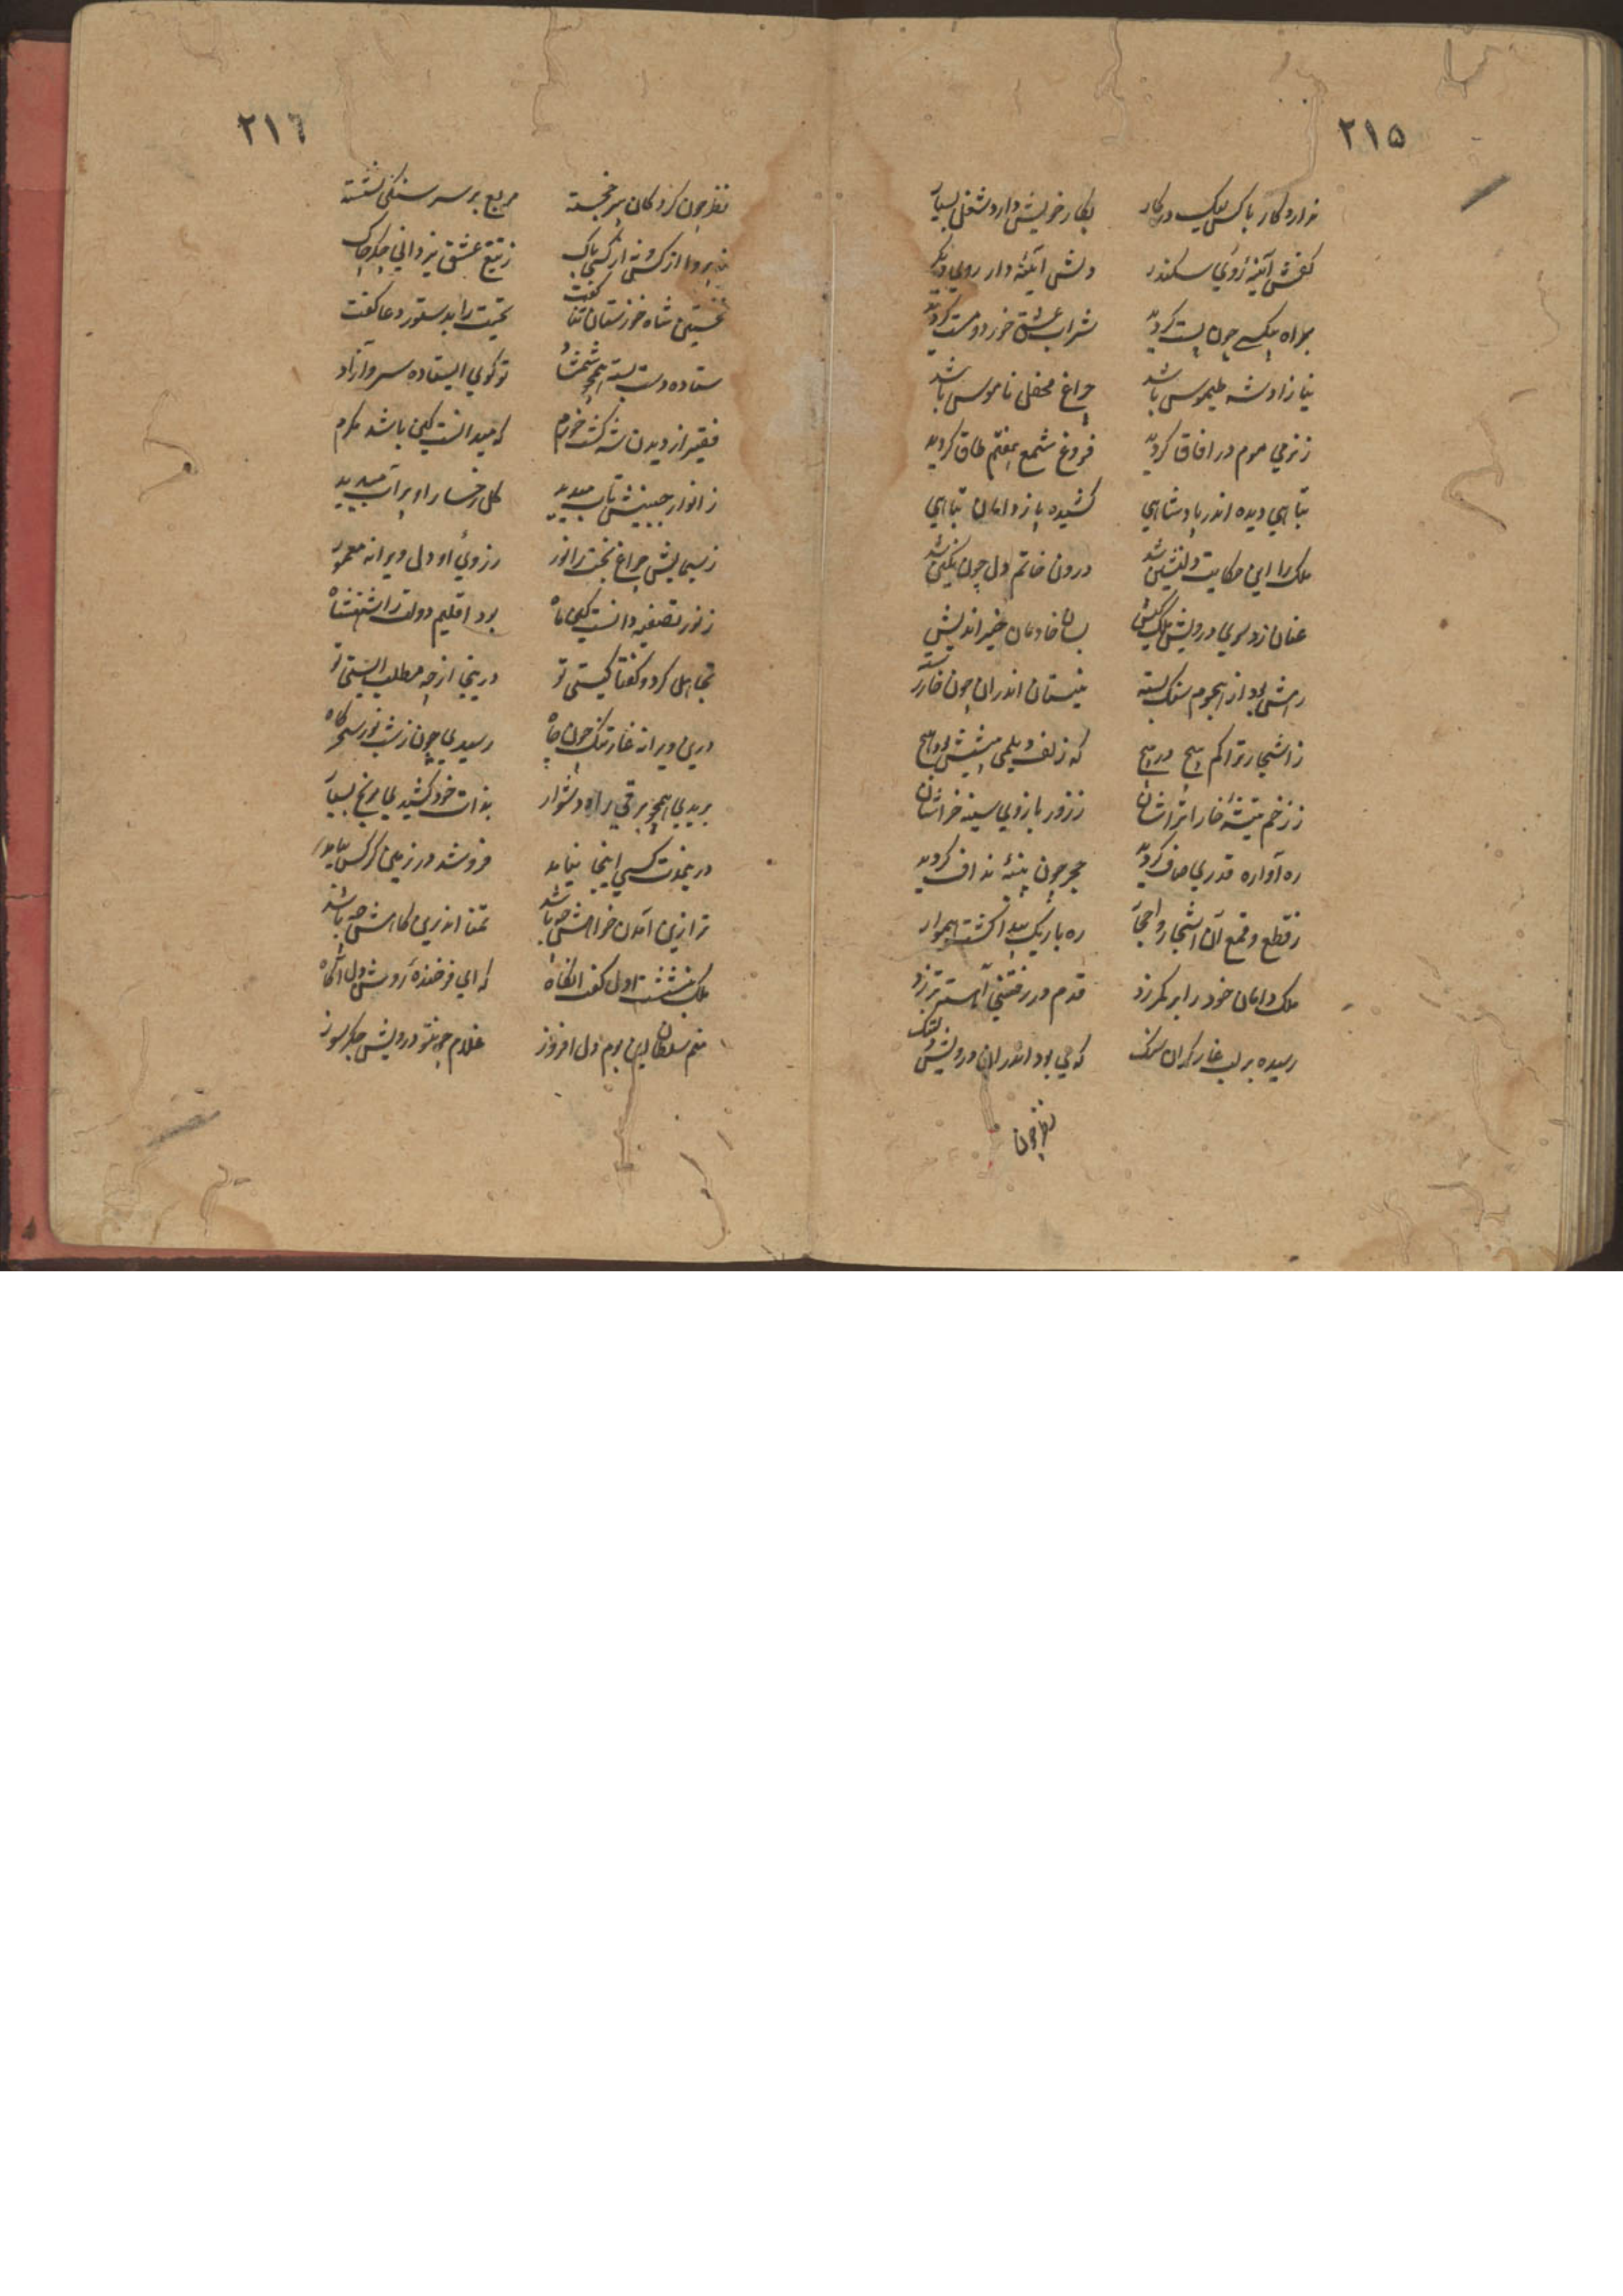 ٢١٥
ندارد کار باکس نیک در کار بکار خویش دارد شغل بسیار
کفش آئینهٔ روی سکندر دلش آئینه دار روی دیگر
براه بیکسے چون پست گردید شراب عشق خورد و مست گردید
نیازاد شه طیموس باشد چراغ محفل ناموس باشد
ز نرمی موم در افاق گردید فروغ شمع هفتم طاق گردید
تباهی دیده اندر بادشاهی کشیده پا ز دامان تباهی
ملک را این حکایت دلنشین شد درون خاتم دل چون نگین شد
عنان زد سوی درویش بسان خادمان خیر اندیش
رهش بود از هجوم سنک بسته نیستان اندران چون خار رسته
ز اشجار تراکم پیچ در پیچ که زلف دیلمی پیشش بود هیچ
ز زخم تیشهٔ خارا تراشان ز زور بازوی سینه خراشان
ره آواره قدری صاف گردید حجر چون پنبهٔ نداف گردید
ز قطع و قمع آن اشجار و احجار ره باریک پیدا گشت هموار
ملک دامان خود را بر کمر زد قدم در رفتن آهسته تر زد
رسیده بر لب غار کران سنک که می بود اندران درویش دلتنک
نظر چون
٢١٦
نظر چون کرد کان پیر خجسته مربع بر سر سنکی نشسته
نه پروا از کس و نه از کسی باک ز تیغ عشق یزدانی جکر چاک
نخستین شاه خوزستان ثنا گفت تحیت را بدستور دعا گفت
ستاده دست بسته همچو شمشاد تو کوی ایستاده سرو آزاد
فقیر از دیدن شه کشت خورم که میدانست کین باشد مکرم
ز انوار جبینش تاب میدید کل رخسار او پر آب میدید
ز سیمایش چراغ بخت را نور ز روی او دل ویرانه معمور
ز نور تصفیه دانست کین ماه بود اقلیم دولت را شهنشاه
تجاهل کرد و گفتا کیستی تو درینجا از چه مطلب ایستی تو
درین ویرانه غار تنک چون چاه رسیدی چون ز شب نور سحرکاه
بریدی همچو برقی راه دشوار بذات خود کشیدی رنج بسیار
درینمدت کسی اینجا نیامد
ترا زین آمدن خواهش چه باشد تمنا اندرین کاهش چه باشد
ملک بنشست اول گفت انگاه که ای فرخندهٔ روشن دل آگاه
منم سلطان این بوم دل افروز غلام چونتو درویش جکر سوز